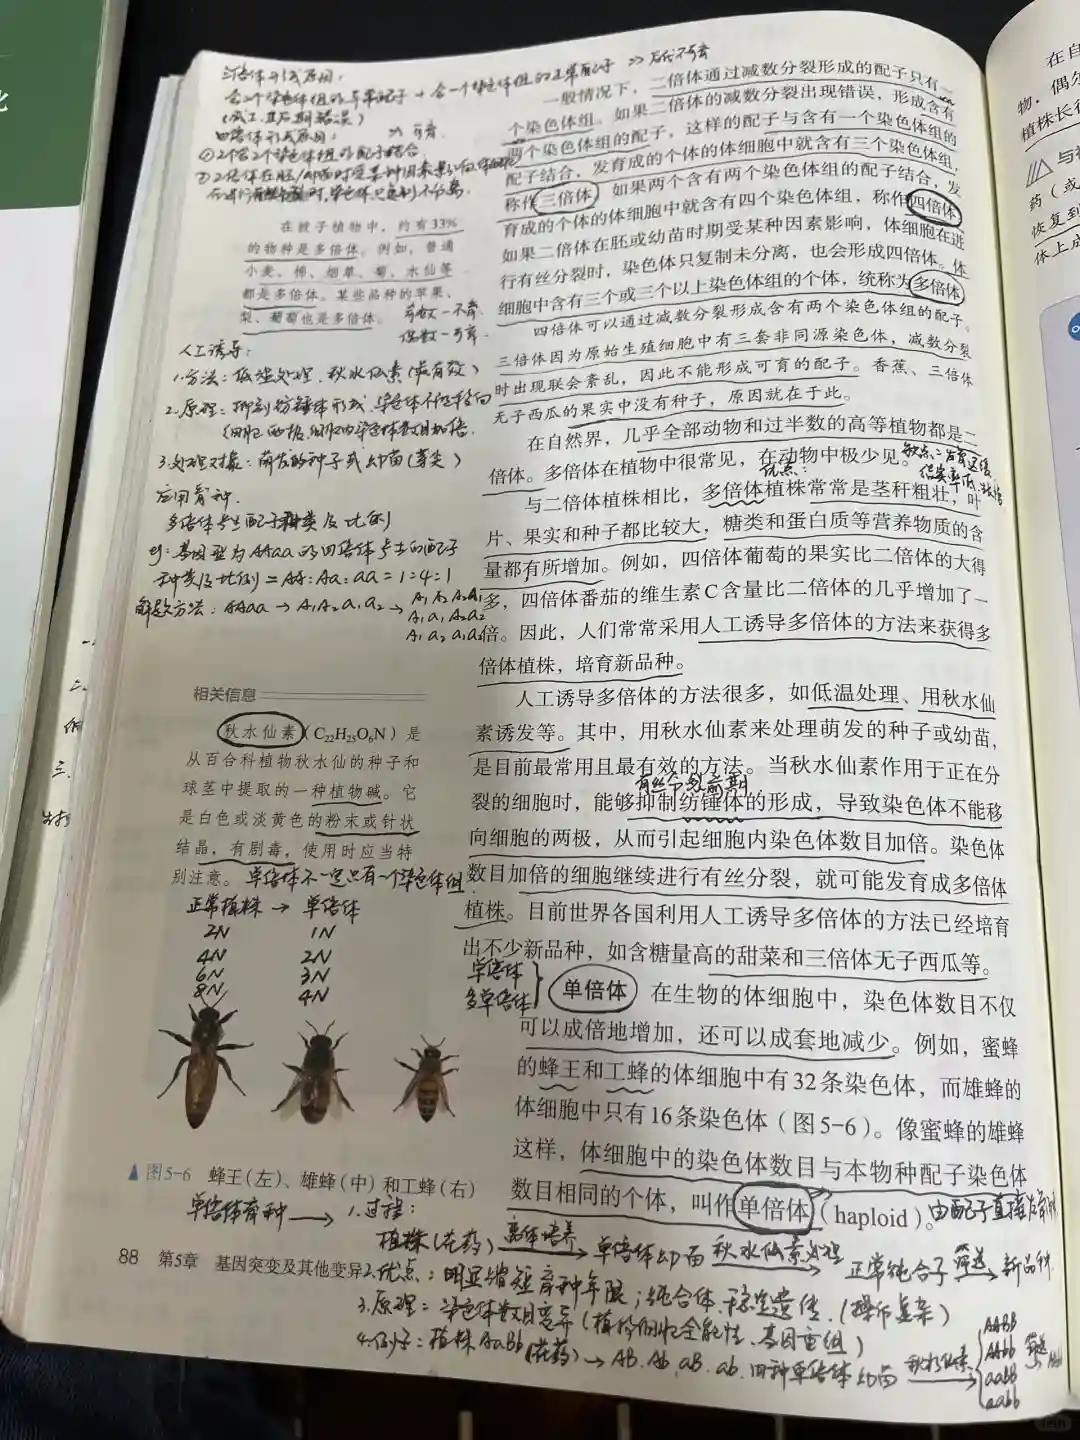 三倍体形成原因：
含二个染色体组的异常配子＋含一个染色体组的正常配子 >> 后代不育
(减Ⅰ、减Ⅱ后期错误)
四倍体形成原因： >> 可育
①2个含2个染色体组的配子结合.
②2倍体在胚/幼苗时受某种因素影响，体细胞
在进行有丝分裂时,染色体只复制不分离.
在被子植物中，约有33%
的物种是多倍体。例如，普通
小麦、棉、烟草、菊、水仙等
都是多倍体。某些品种的苹果、
梨、葡萄也是多倍体。
奇数－不育
偶数－可育.
人工诱导：
1.方法：低温处理、秋水仙素(最有效)
2.原理：抑制纺锤体形成,染色体不能移向
细胞两极,细胞内染色体数目加倍.
3.处理对象：萌发的种子或幼苗(芽尖)
应用育种.
多倍体产生配子种类及比例
eg：基因型为AAaa的四倍体产生的配子
种类及比例＝AA:Aa:aa＝1:4:1
解题方法：AAaa → A₁A₂a₁a₂ → A₁A₂ A₂a₁
A₁a₁ A₂a₂
A₁a₂ a₁a₂
相关信息
秋水仙素（C₂₂H₂₅O₆N）是
从百合科植物秋水仙的种子和
球茎中提取的一种植物碱。它
是白色或淡黄色的粉末或针状
结晶，有剧毒，使用时应当特
别注意。
单倍体不一定只有一个染色体组
正常植株 → 单倍体
2N 1N
4N 2N
6N 3N
8N 4N
▲图5-6 蜂王(左)、雄蜂(中)和工蜂(右)
一般情况下，二倍体通过减数分裂形成的配子只有一
个染色体组。如果二倍体的减数分裂出现错误，形成含有
两个染色体组的配子，这样的配子与含有一个染色体组的
配子结合，发育成的个体的体细胞中就含有三个染色体组，
称作三倍体。如果两个含有两个染色体组的配子结合，发
育成的个体的体细胞中就含有四个染色体组，称作四倍体。
如果二倍体在胚或幼苗时期受某种因素影响，体细胞在进
行有丝分裂时，染色体只复制未分离，也会形成四倍体。体
细胞中含有三个或三个以上染色体组的个体，统称为多倍体。
四倍体可以通过减数分裂形成含有两个染色体组的配子。
三倍体因为原始生殖细胞中有三套非同源染色体，减数分裂
时出现联会紊乱，因此不能形成可育的配子。香蕉、三倍体
无子西瓜的果实中没有种子，原因就在于此。
在自然界，几乎全部动物和过半数的高等植物都是二
倍体。多倍体在植物中很常见，在动物中极少见。
缺点：发育迟缓
优点：
结实率低
与二倍体植株相比，多倍体植株常常是茎秆粗壮，叶
片、果实和种子都比较大，糖类和蛋白质等营养物质的含
量都有所增加。例如，四倍体葡萄的果实比二倍体的大得
多，四倍体番茄的维生素C含量比二倍体的几乎增加了一
倍。因此，人们常常采用人工诱导多倍体的方法来获得多
倍体植株，培育新品种。
人工诱导多倍体的方法很多，如低温处理、用秋水仙
素诱发等。其中，用秋水仙素来处理萌发的种子或幼苗，
是目前最常用且最有效的方法。当秋水仙素作用于正在分
有丝分裂前期
裂的细胞时，能够抑制纺锤体的形成，导致染色体不能移
向细胞的两极，从而引起细胞内染色体数目加倍。染色体
数目加倍的细胞继续进行有丝分裂，就可能发育成多倍体
植株。目前世界各国利用人工诱导多倍体的方法已经培育
出不少新品种，如含糖量高的甜菜和三倍体无子西瓜等。
单倍体
多单倍体
单倍体 在生物的体细胞中，染色体数目不仅
可以成倍地增加，还可以成套地减少。例如，蜜蜂
的蜂王和工蜂的体细胞中有32条染色体，而雄蜂的
体细胞中只有16条染色体（图5-6）。像蜜蜂的雄蜂
这样，体细胞中的染色体数目与本物种配子染色体
数目相同的个体，叫作单倍体（haploid）。
由配子直接发育
单倍体育种 → 1.过程：
植株(花药) 离体培养→ 单倍体幼苗 秋水仙素处理→ 正常纯合子 筛选→ 新品种
88 第5章 基因突变及其他变异
2.优点：明显缩短育种年限；纯合体、稳定遗传.(操作复杂)
3.原理：染色体数目变异(植物细胞全能性、基因重组)
4.例子：植株AaBb(花药) → AB、Ab、aB、ab.四种单倍体幼苗 秋水仙素→ AABB
AAbb
aaBB
aabb
筛选
在自
物，偶尔
植株长得
药（或
恢复到
体上成